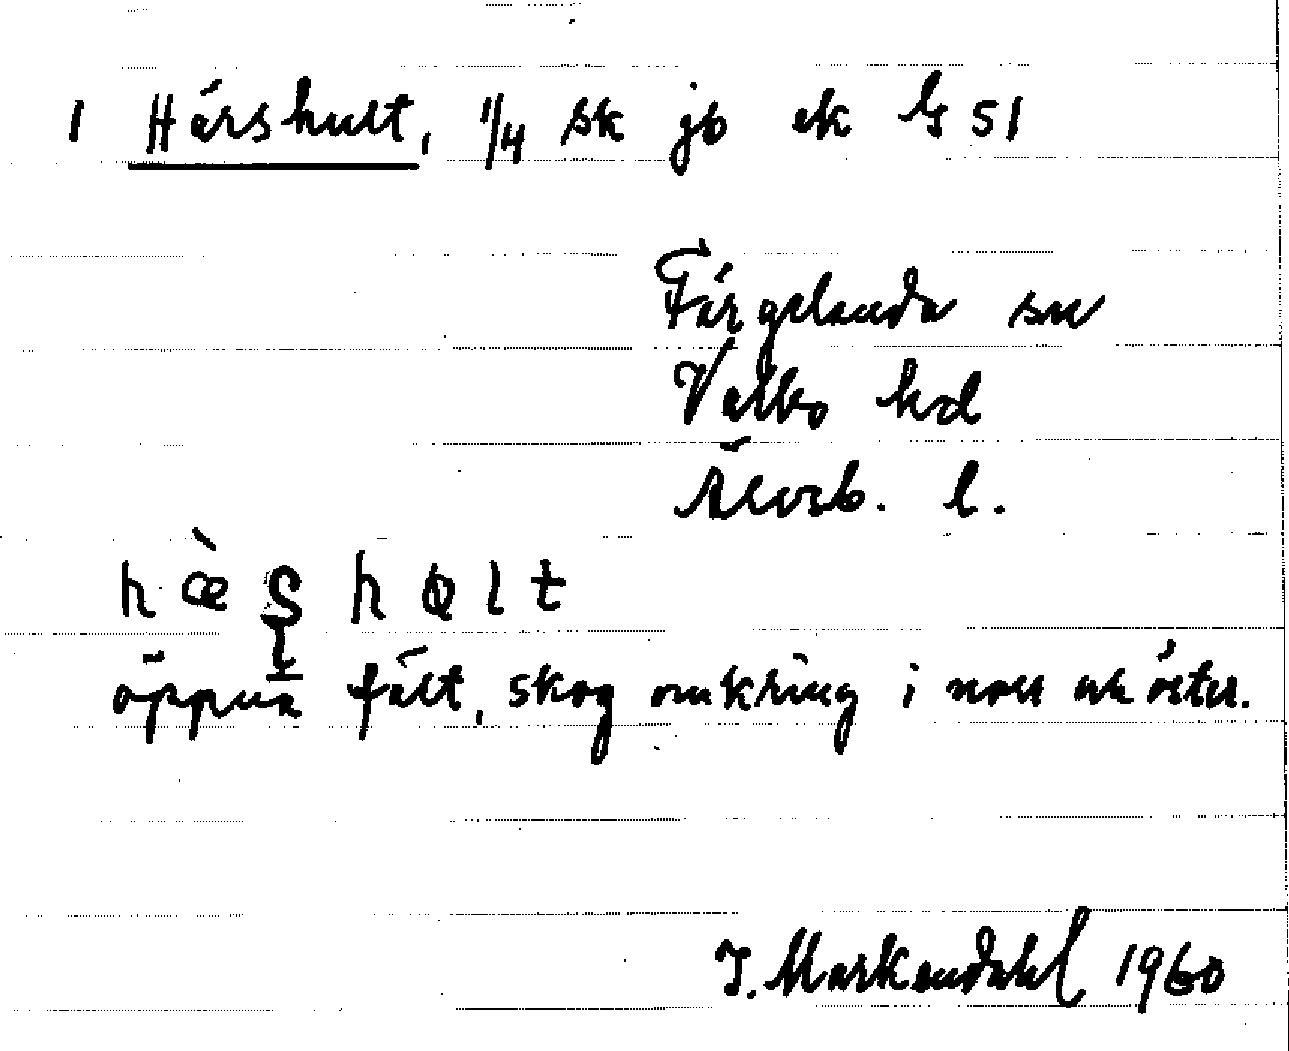 1 Härshult, 1/4 sk jb ek G 51
Färgelanda sn
Valbo hd
Älvsb. l.
öppna fält, skog omkring i norr och öster.
J. Markendahl 1960